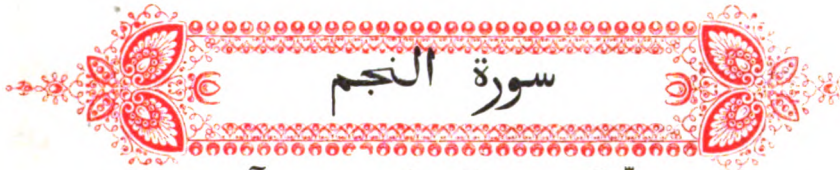 سورة النجم